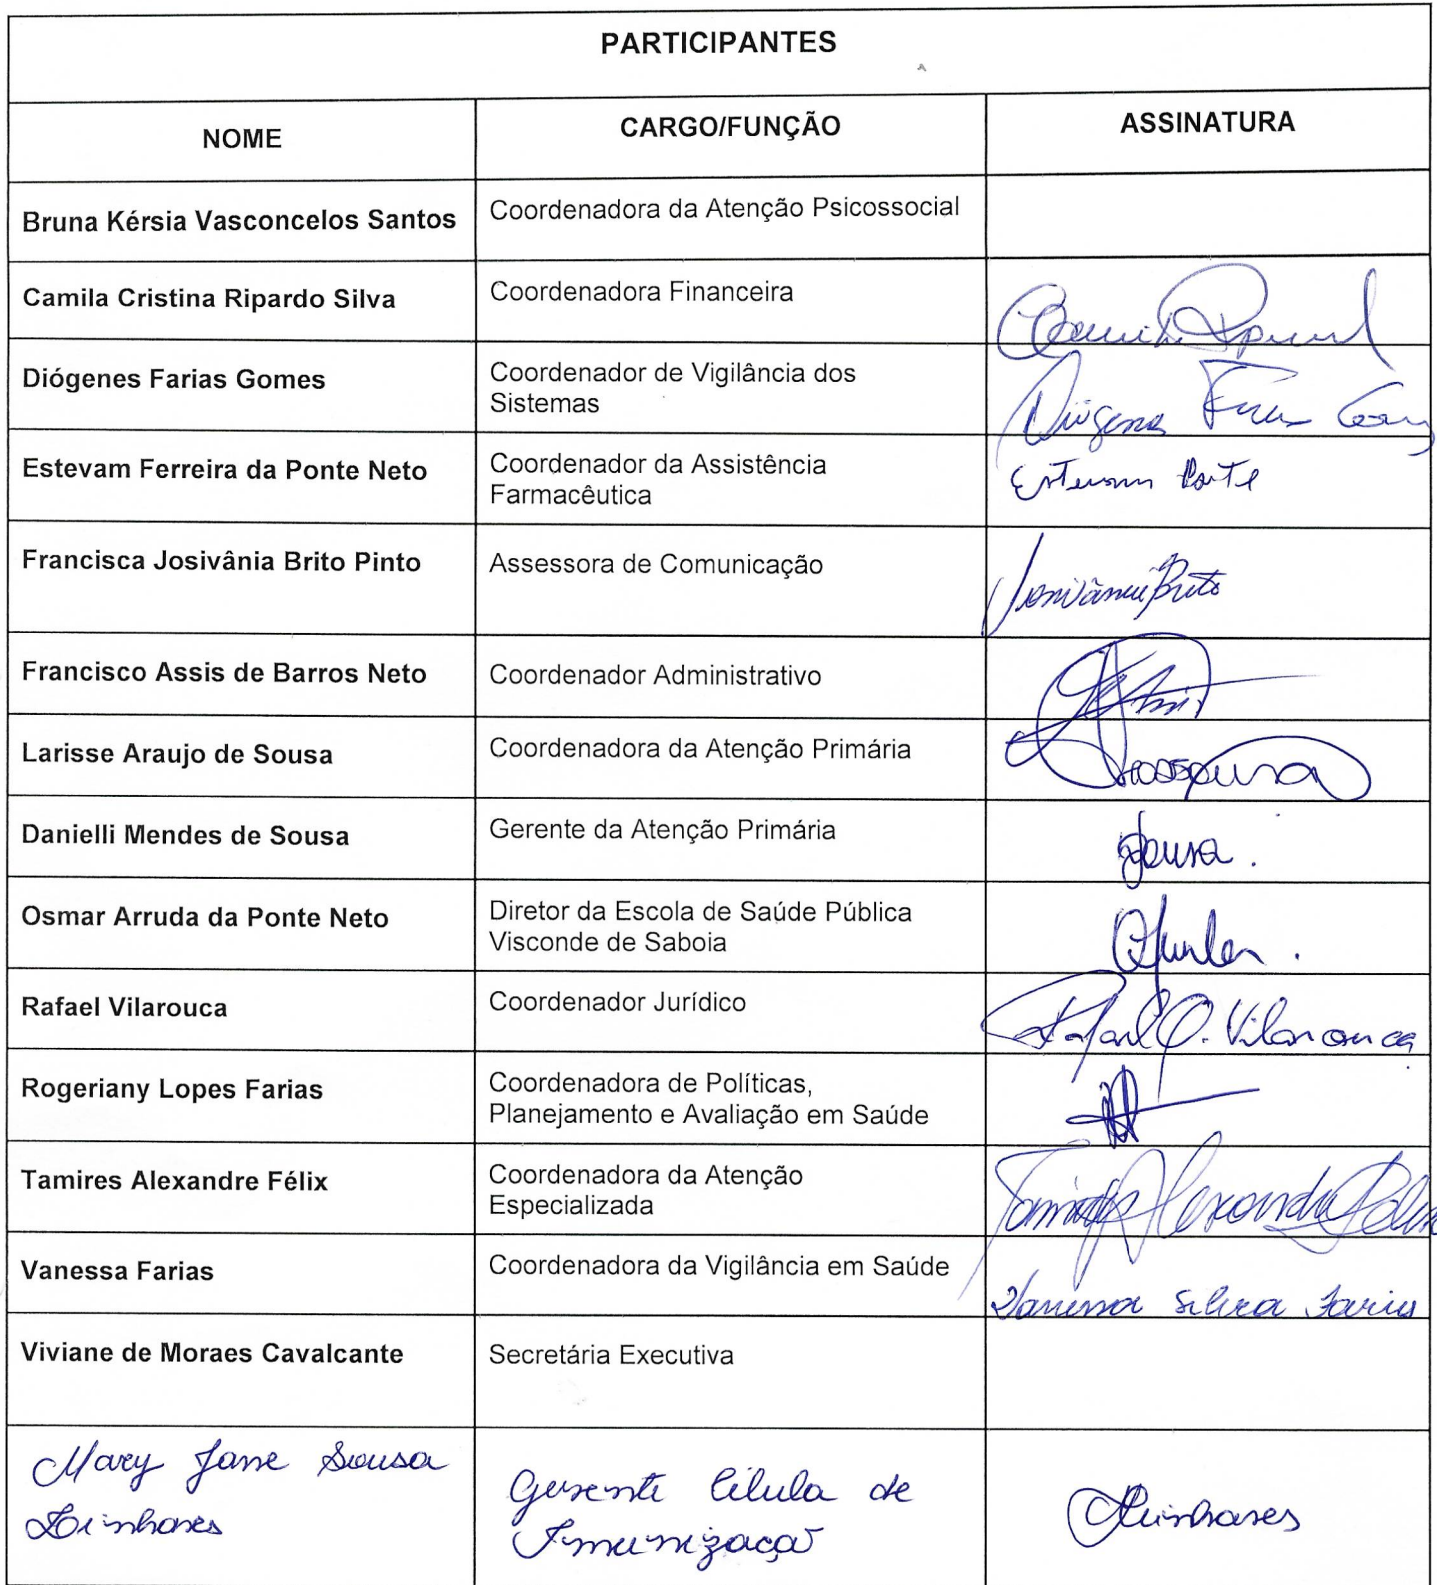 PARTICIPANTES
NOME
CARGO/FUNÇÃO
ASSINATURA
Bruna Kérsia Vasconcelos Santos
Coordenadora da Atenção Psicossocial
Camila Cristina Ripardo Silva
Coordenadora Financeira
Diógenes Farias Gomes
Coordenador de Vigilância dos
Sistemas
Estevam Ferreira da Ponte Neto
Coordenador da Assistência
Farmacêutica
Estevam Ponte
Francisca Josivânia Brito Pinto
Assessora de Comunicação
Josivânia Brito
Francisco Assis de Barros Neto
Coordenador Administrativo
Larisse Araujo de Sousa
Coordenadora da Atenção Primária
Danielli Mendes de Sousa
Gerente da Atenção Primária
Osmar Arruda da Ponte Neto
Diretor da Escola de Saúde Pública
Visconde de Saboia
Rafael Vilarouca
Coordenador Jurídico
Rafael Q. Vilarouca
Rogeriany Lopes Farias
Coordenadora de Políticas,
Planejamento e Avaliação em Saúde
Tamires Alexandre Félix
Coordenadora da Atenção
Especializada
Tamires Alexandre Félix
Vanessa Farias
Coordenadora da Vigilância em Saúde
Vanessa Silva Farias
Viviane de Moraes Cavalcante
Secretária Executiva
Mary Jane Sousa
Linhares
Gerente Célula de
Imunização
Linhares